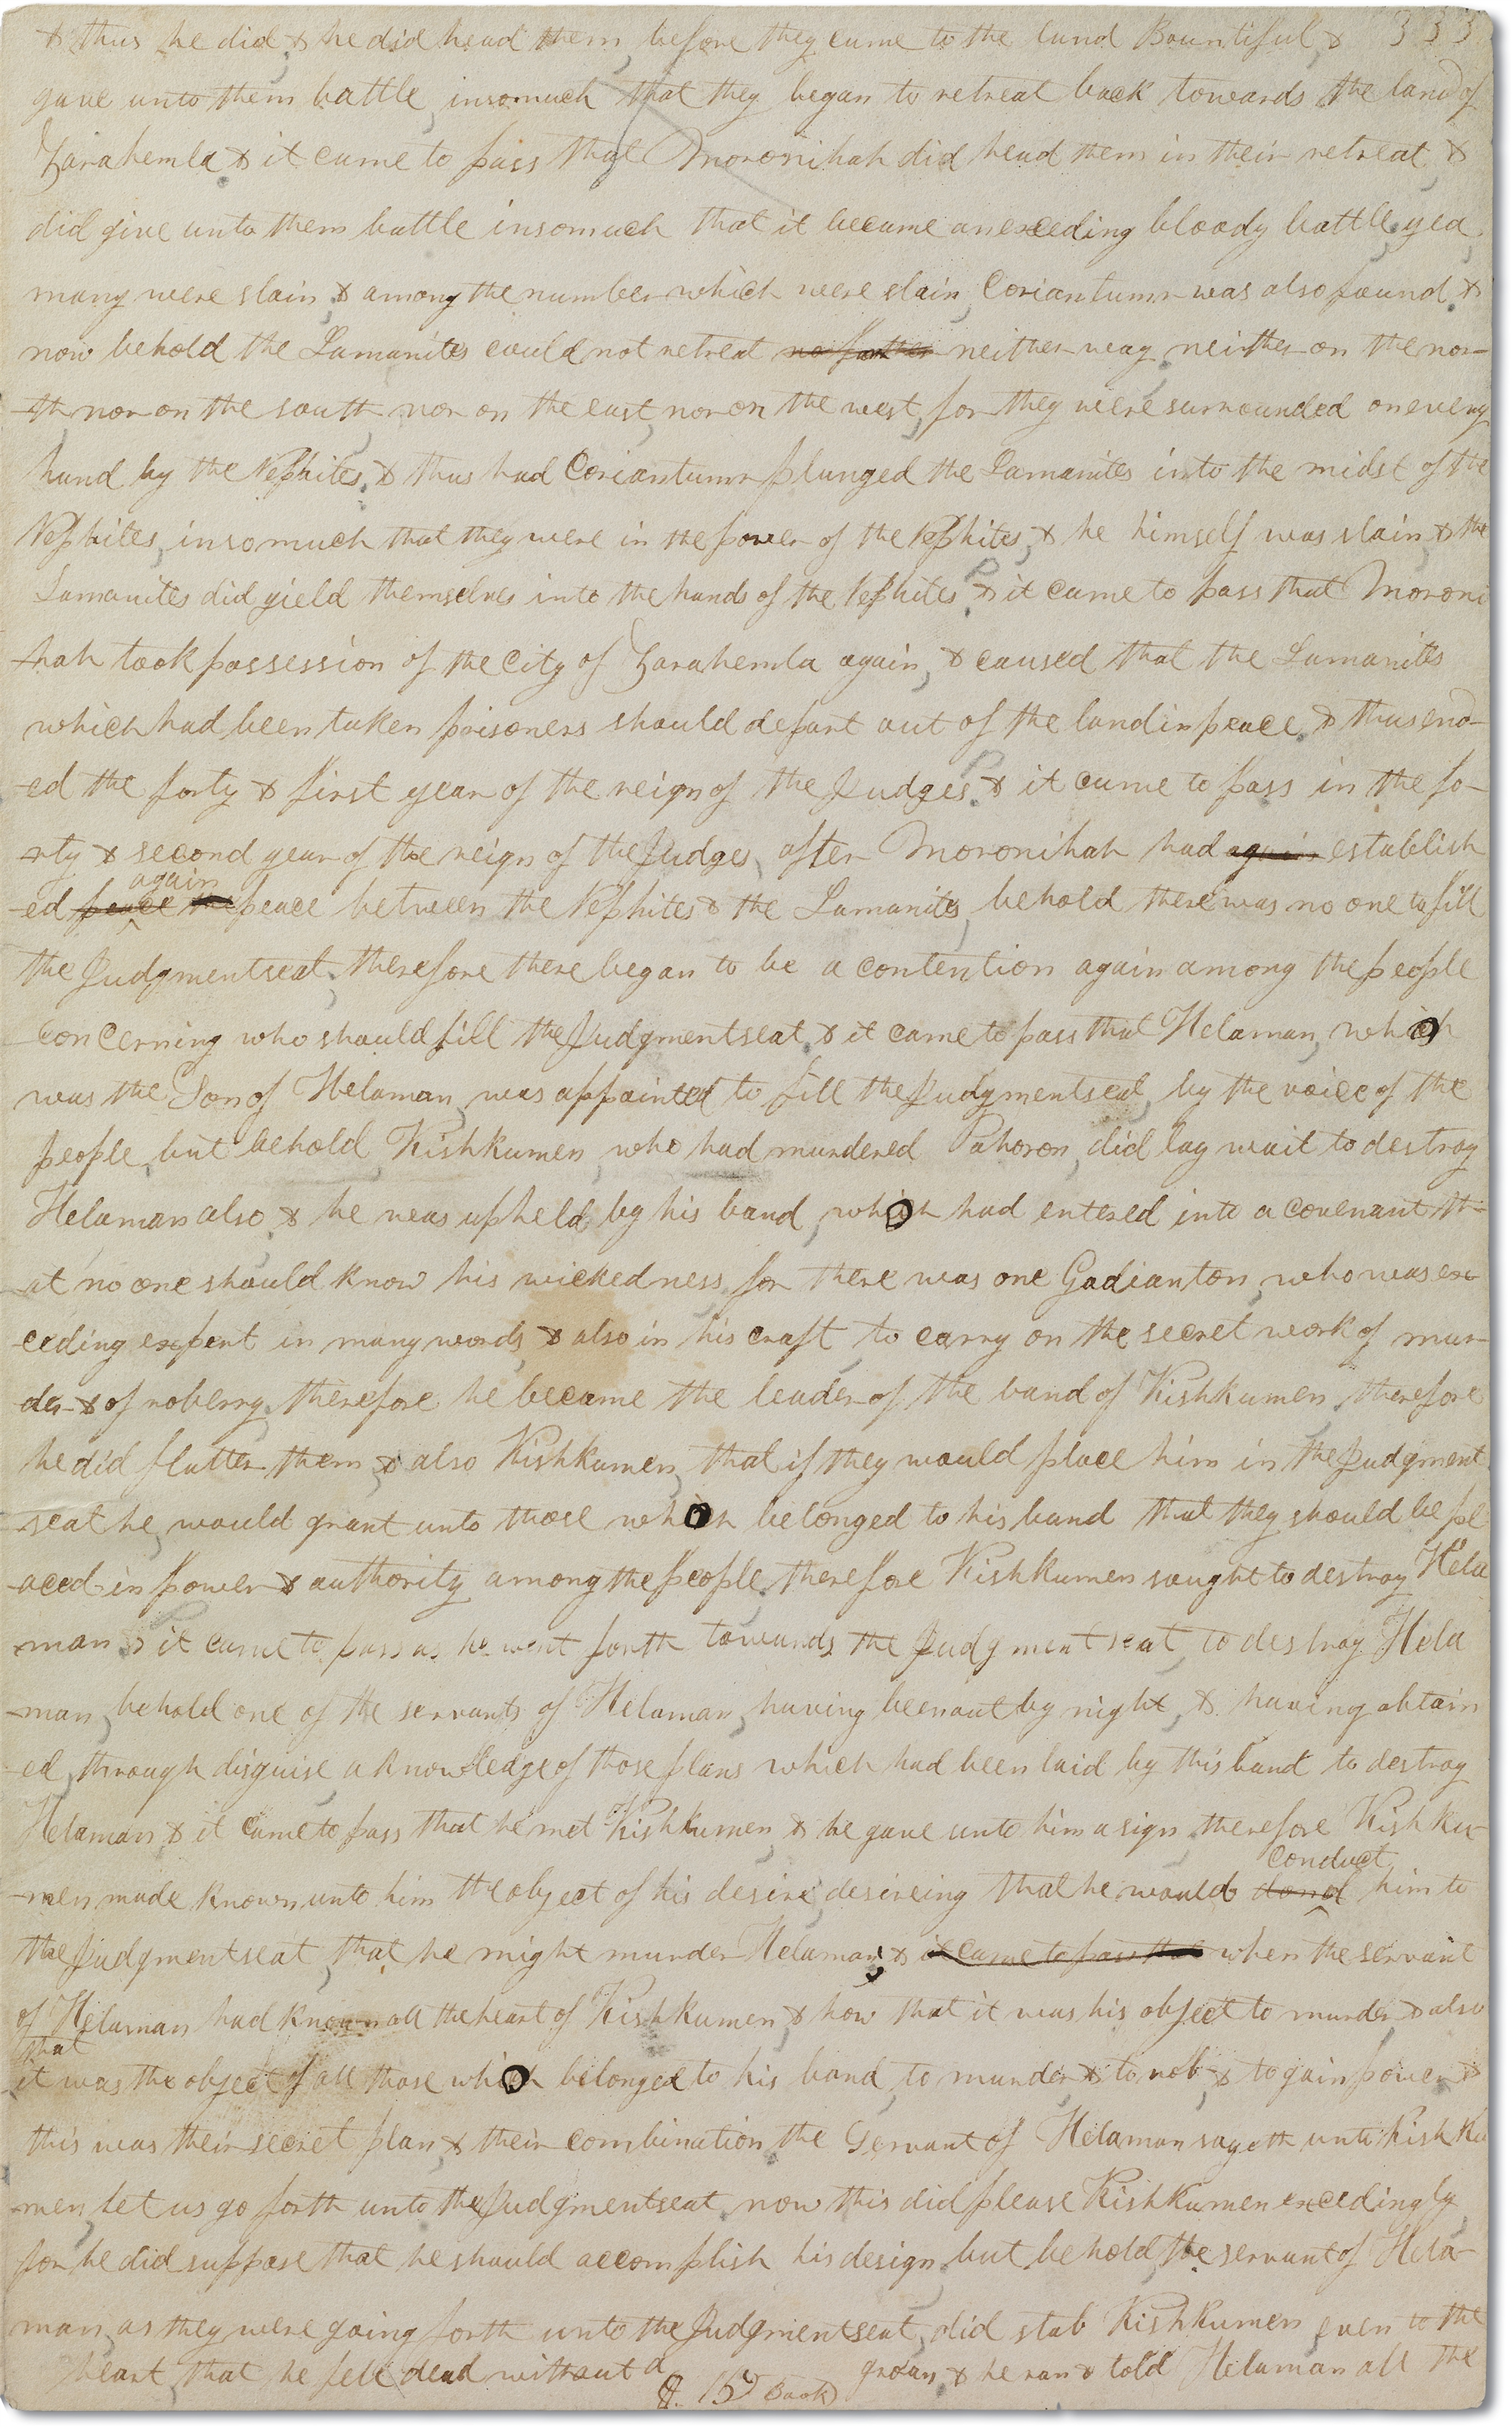 & thus he did & he did head them before they came to the land Bountiful & 333
gave unto them battle insomuch that they began to retreat back towards the land of
Zarahemla & it came to pass that Moronihah did head them in their retreat &
did give unto them battle insomuch that it became an exceding bloody battle yea
many were slain & among the number which were slain Coriantumr was also found &
now behold the Lamanites could not retreat no farther neither way neither on the nor-
-th nor on the south nor on the east nor on the west for they were surrounded on every
hand by the Nephites & thus had Coriantumr plunged the Lamanites into the midst of the
Nephites insomuch that they were in the power of the Nephites & he himself was slain & the
Lamanites did yield themselves into the hands of the Nephites & it came to pass that Moroni
-hah took possession of the City of Zarahemla again & caused that the Lamanites
which had been taken prisoners should depart out of the land in peace & thus end-
-ed the forty & first year of the reign of the Judges & it came to pass in the fo-
-rty & second year of the reign of the Judges after Moronihah had again establish
again
-ed peace the peace between the Nephites & the Lamanites behold there was no one to fill
the Judgmentseat therefore there began to be a contention again among the people
concerning who should fill the Judgmentseat & it came to pass that Helaman which
was the Son of Helaman was appointed to fill the Judgmentseat by the voice of the
people but behold Kishkumen who had murdered Pahoron did lay wait to destroy
Helaman also & he was upheld by his band which had entered into a covenant th-
-at no one should know his wickedness for there was one Gadianton who was ex-
ceding expert in many words & also in his craft to carry on the secret work of mur-
der & of roberry therefore he became the leader of the band of Kishkumen therefore
he did flatter them & also Kishkumen that if they would place him in the Judgment
seat he would grant unto those which belonged to his band that they should be pl
-aced in power & authority among the people therefore Kishkumen sought to destroy Hela
-man & it came to pass as he went forth towards the Judgmentseat to destroy Hela
-man behold one of the servants of Helaman having been out by night & having obtain
-ed through disguise a knowledge of those plans which had been laid by this band to destroy
Helaman & it came to pass that he met Kishkumen & he gave unto him a sign therefore Kishku-
conduct
-men made known unto him the object of his desire desireing that he would him to
the Judgmentseat that he might murder Helaman & it came to pass that when the servant
of Helaman had known all the heart of Kishkumen & how that it was his object to murder & also
that
it was the object of all those which belonged to his band to murder & to rob & to gain power &
this was their secret plan & their combination the Servant of Helaman sayeth unto Kishku
-men let us go forth unto the Judgmentseat now this did please Kishkumen excedingly
for he did suppose that he should accomplish his design but behold the servant of Hela-
man as they were going forth unto the Judgmentseat did stab Kishkumen even to the
heart that he fell dead without a groan & he ran & told Helaman all the
15 Book